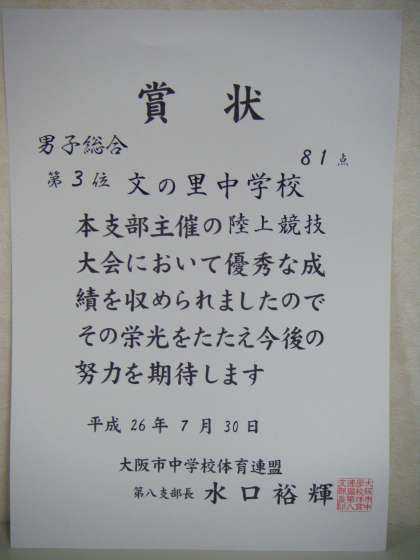 賞状
男子総合
81点
第3位 文の里中学校
本支部主催の陸上競技
大会において優秀な成
績を収められましたので
その栄光をたたえ今後の
努力を期待します
平成26年7月30日
大阪市中学校体育連盟
第八支部長 水口裕輝